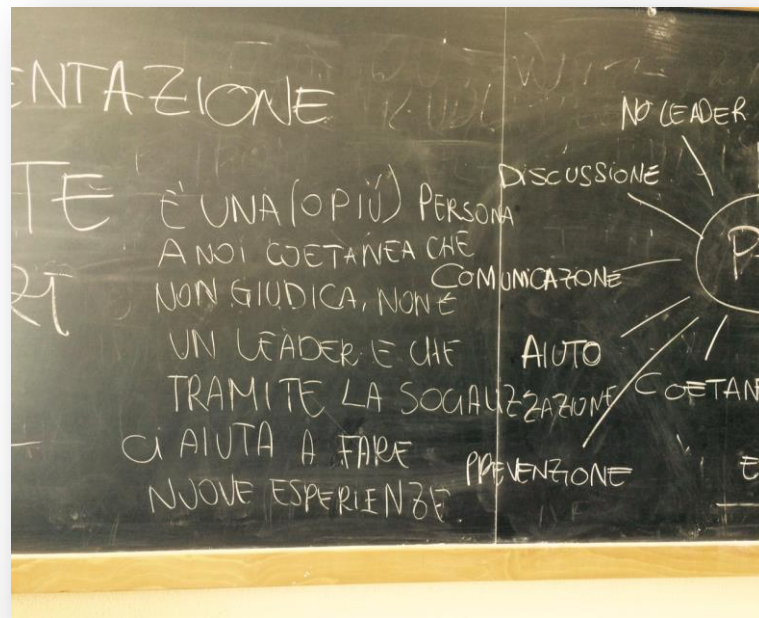 ENTAZIONE
TE
RI
È UNA (O PIÙ) PERSONA
A NOI COETANEA CHE
NON GIUDICA, NON È
UN LEADER E CHE
TRAMITE LA SOCIALIZZAZIONE
CI AIUTA A FARE
NUOVE ESPERIENZE.
NO LEADER
DISCUSSIONE
COMUNICAZIONE
AIUTO
COETAN
PREVENZIONE
E
P